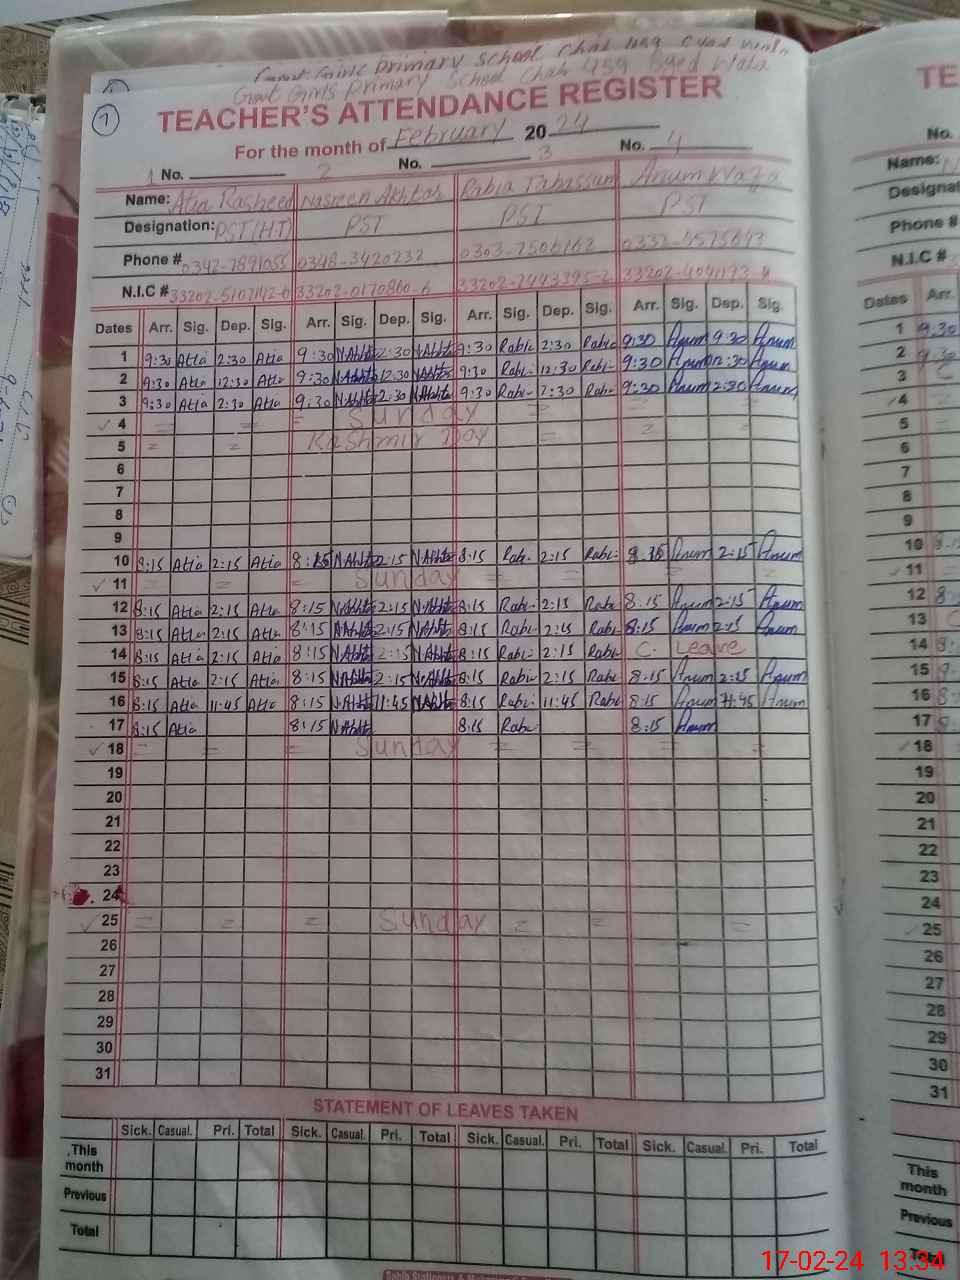 Govt Girls Primary School Chak 459 Syed Wala
1
TEACHER'S ATTENDANCE REGISTER
For the month of February 2024
1 No. 2 No. 3 No. 4
Name: Atia Rasheed Nasreen Akhtar Rabia Tabassum Anum
Designation: PST (H.T) PST PST PST
Phone # 0342-7891055 0348-3420232 0303-7506162 0332-4575643
N.I.C # 33202-5107142-0 33202-0170860-6 33202-7443395-2 33202-4041193-4
Dates Arr. Sig. Dep. Sig. Arr. Sig. Dep. Sig. Arr. Sig. Dep. Sig. Arr. Sig. Dep. Sig.
1 9:30 Atia 2:30 Atia 9:30 N.Akhtar 2:30 N.Akhtar 9:30 Rabi 2:30 Rabi 9:30 Anum 9:30 Anum
2 9:30 Atia 12:30 Atia 9:30 N.Akhtar 12:30 N.Akhtar 9:30 Rabi 12:30 Rabi 9:30 Anum 12:30 Anum
3 9:30 Atia 2:30 Atia 9:30 N.Akhtar 2:30 N.Akhtar 9:30 Rabi 2:30 Rabi 9:30 Anum 2:30 Anum
4 = = = Sunday = =
5 = = Kashmir Day = =
6
7
8
9
10 8:15 Atia 2:15 Atia 8:15 N.Akhtar 2:15 N.Akhtar 8:15 Rabi 2:15 Rabi 8:15 Anum 2:15 Anum
11 = = = Sunday = = = =
12 8:15 Atia 2:15 Atia 8:15 N.Akhtar 2:15 N.Akhtar 8:15 Rabi 2:15 Rabi 8:15 Anum 2:15 Anum
13 8:15 Atia 2:15 Atia 8:15 N.Akhtar 2:15 N.Akhtar 8:15 Rabi 2:15 Rabi 8:15 Anum 2:15 Anum
14 8:15 Atia 2:15 Atia 8:15 N.Akhtar 2:15 N.Akhtar 8:15 Rabi 2:15 Rabi C. Leave
15 8:15 Atia 2:15 Atia 8:15 N.Akhtar 2:15 N.Akhtar 8:15 Rabi 2:15 Rabi 8:15 Anum 2:15 Anum
16 8:15 Atia 11:45 Atia 8:15 N.Akhtar 11:45 N.Akhtar 8:15 Rabi 11:45 Rabi 8:15 Anum 11:45 Anum
17 8:15 Atia 8:15 N.Akhtar 8:15 Rabi 8:15 Anum
18 = = = Sunday = = = =
19
20
21
22
23
24
25 = = = Sunday = = =
26
27
28
29
30
31
STATEMENT OF LEAVES TAKEN
Sick. Casual. Pri. Total Sick. Casual. Pri. Total Sick. Casual. Pri. Total Sick. Casual. Pri. Total
This month
Previous
Total
TE
No.
Name:
Designat
Phone #
N.I.C #
Dates Arr.
1 9:30
2 9:30
3
4
5
6
7
8
9
10
11
12
13
14
15
16
17
18
19
20
21
22
23
24
25
26
27
28
29
30
31
This month
Previous
Total
17-02-24 13:34